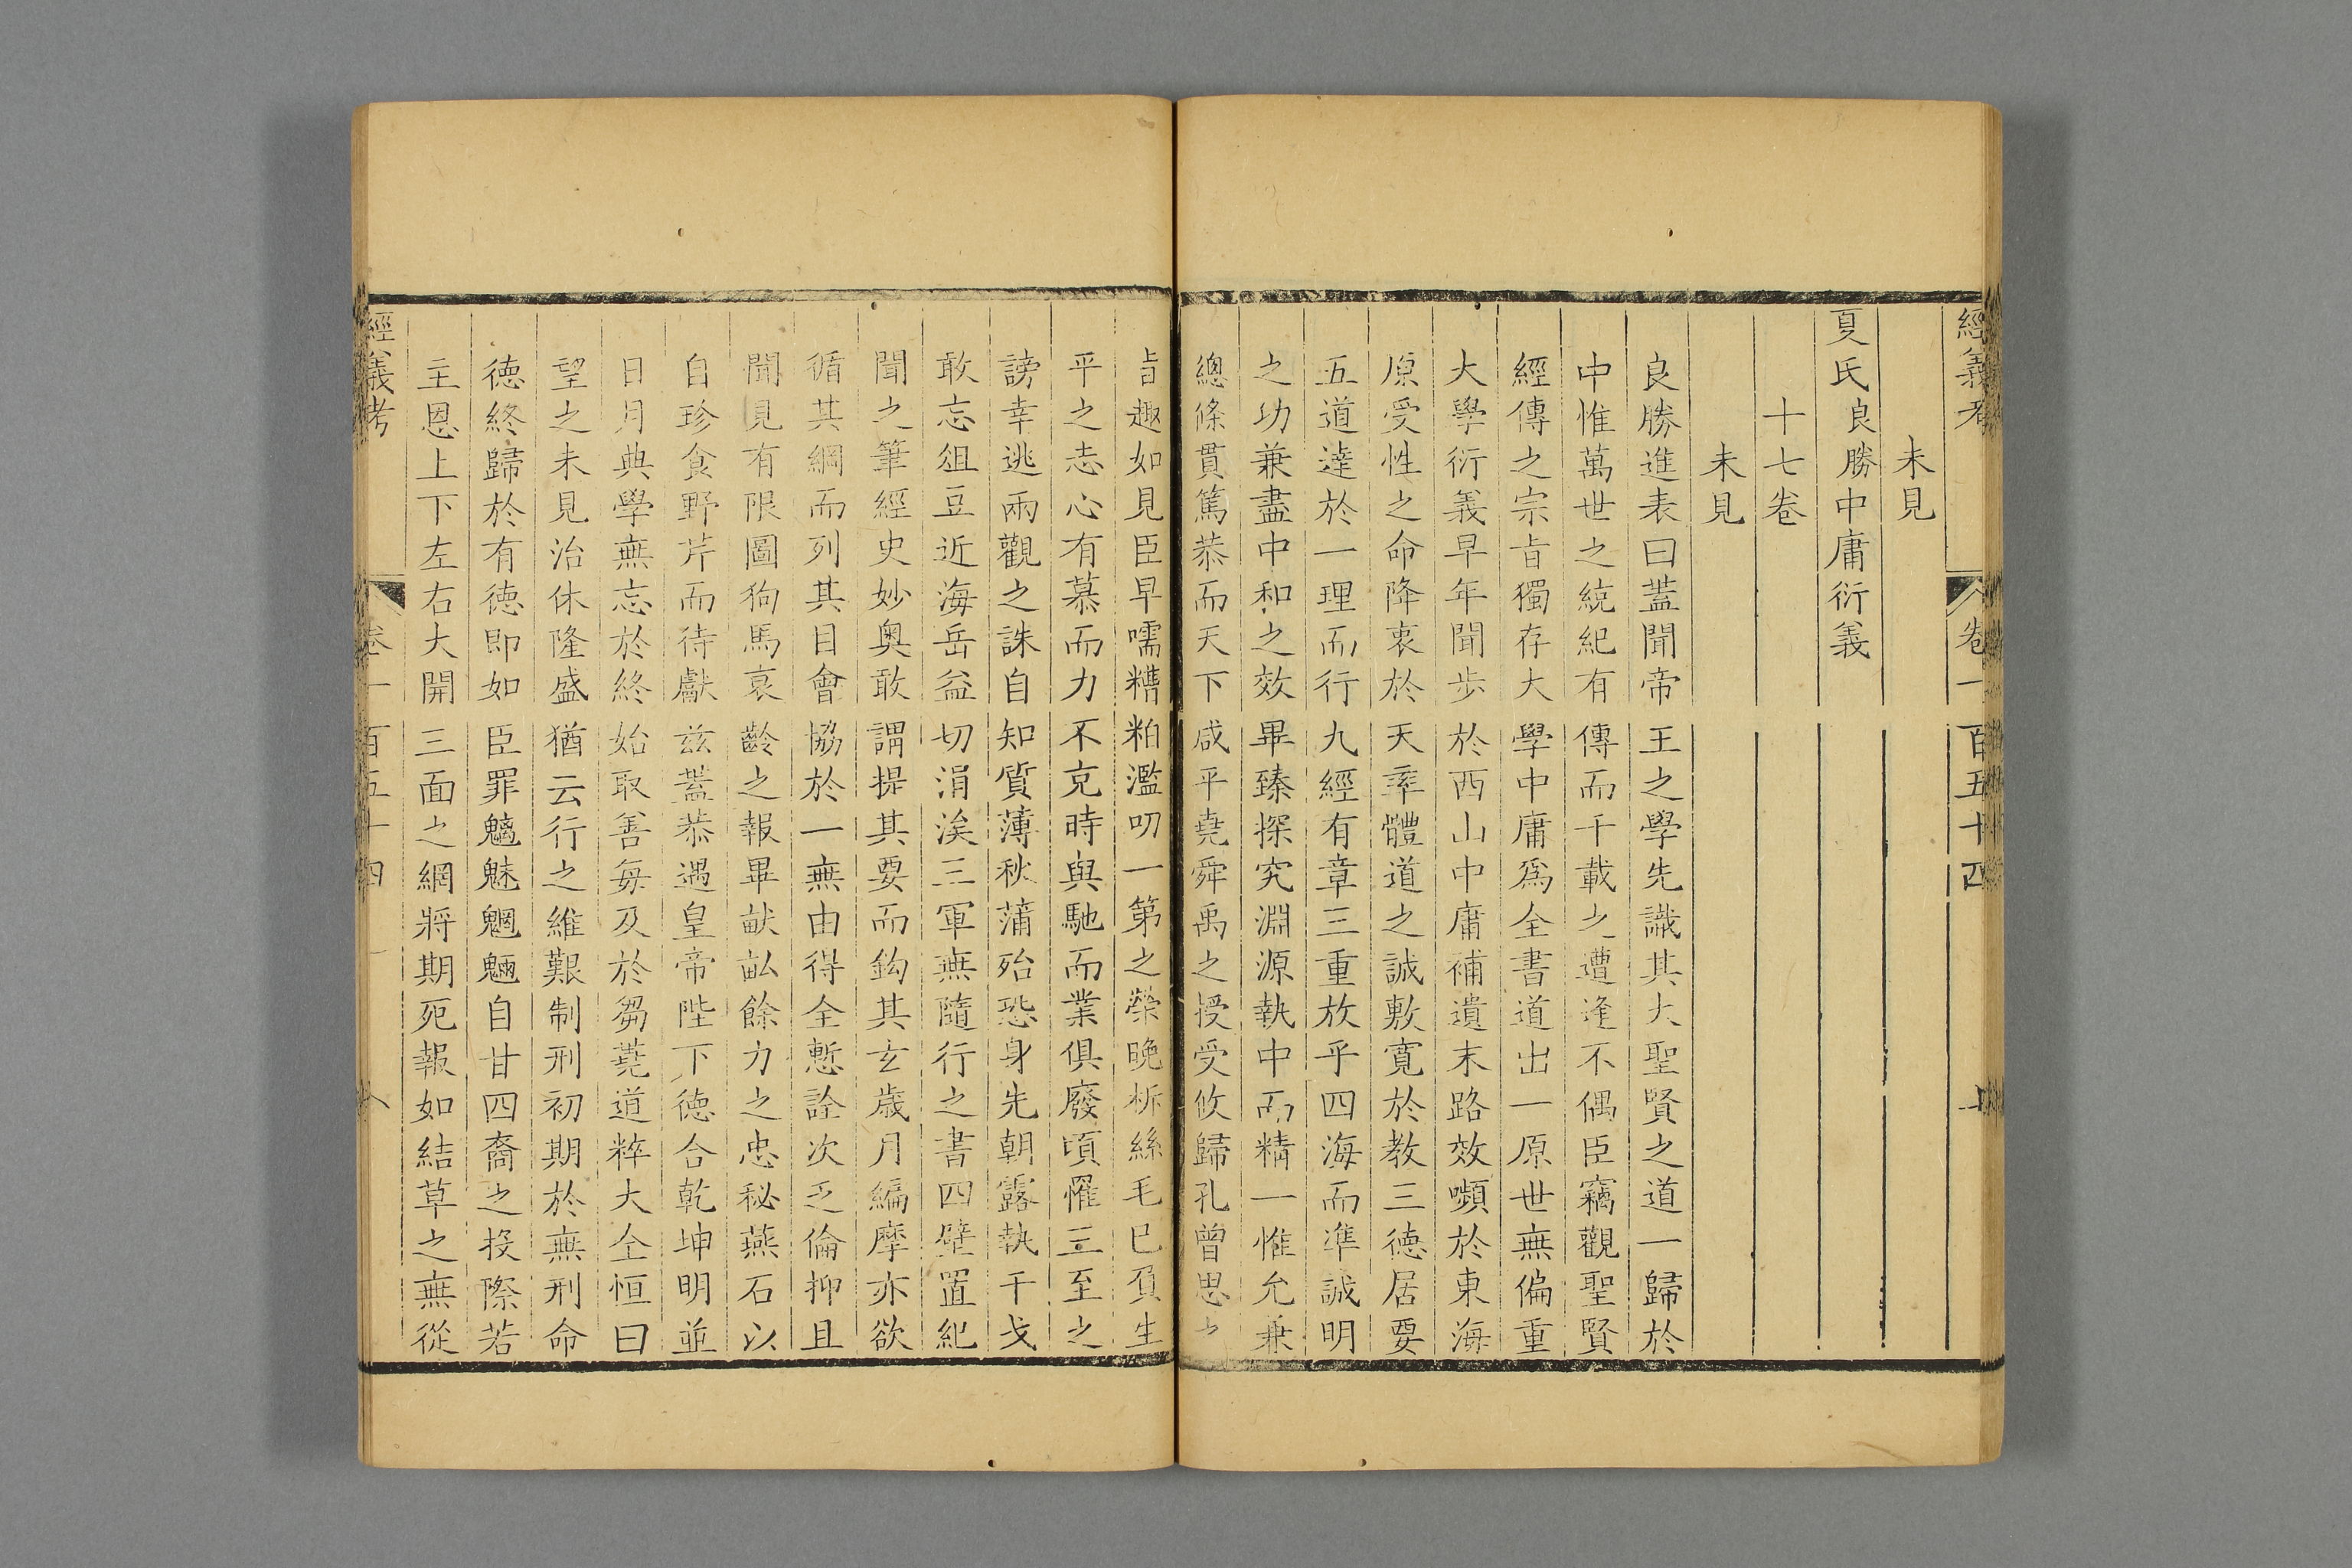 經義考 卷一百五十四
未見
夏氏良勝中庸衍義
十七卷
未見
良勝進表曰蓋聞帝王之學先識其大聖賢之道一歸於
中惟萬世之統紀有傳而千載之遭逢不偶臣竊觀聖賢
經傳之宗旨獨存大學中庸為全書道出一原世無偏重
大學衍義早年聞步於西山中庸補遺末路效嚬於東海
原受性之命降衷於天率體道之誠敷寬於教三德居要
五道達於一理而行九經有章三重放乎四海而準誠明
之功兼盡中和之效畢臻探究淵源執中而精一惟允兼
總條貫篤恭而天下咸平堯舜禹之授受攸歸孔曾思之
旨趣如見臣早嚅糟粕濫叨一第之榮晚析絲毛已負生
平之志心有慕而力不克時與馳而業俱廢頃罹三至之
謗幸逃兩觀之誅自知質薄秋蒲殆恐身先朝露執干戈
敢忘俎豆近海岳益切涓涘三軍無隨行之書四壁置紀
聞之筆經史妙奧敢謂提其要而鈎其玄歲月編摩亦欲
循其綱而列其目會協於一無由得全慙詮次乏倫抑且
聞見有限圖狗馬哀齡之報畢畎畝餘力之忠秘燕石以
自珍食野芹而待獻兹蓋恭遇皇帝陛下德合乾坤明並
日月典學無忘於終始取善每及於芻蕘道粹大全恒曰
望之未見治休隆盛猶云行之維艱制刑初期於無刑命
德終歸於有德即如臣罪魑魅魍魎自甘四裔之投際若
主恩上下左右大開三面之網將期死報如結草之無從
經義考 卷一百五十四 八